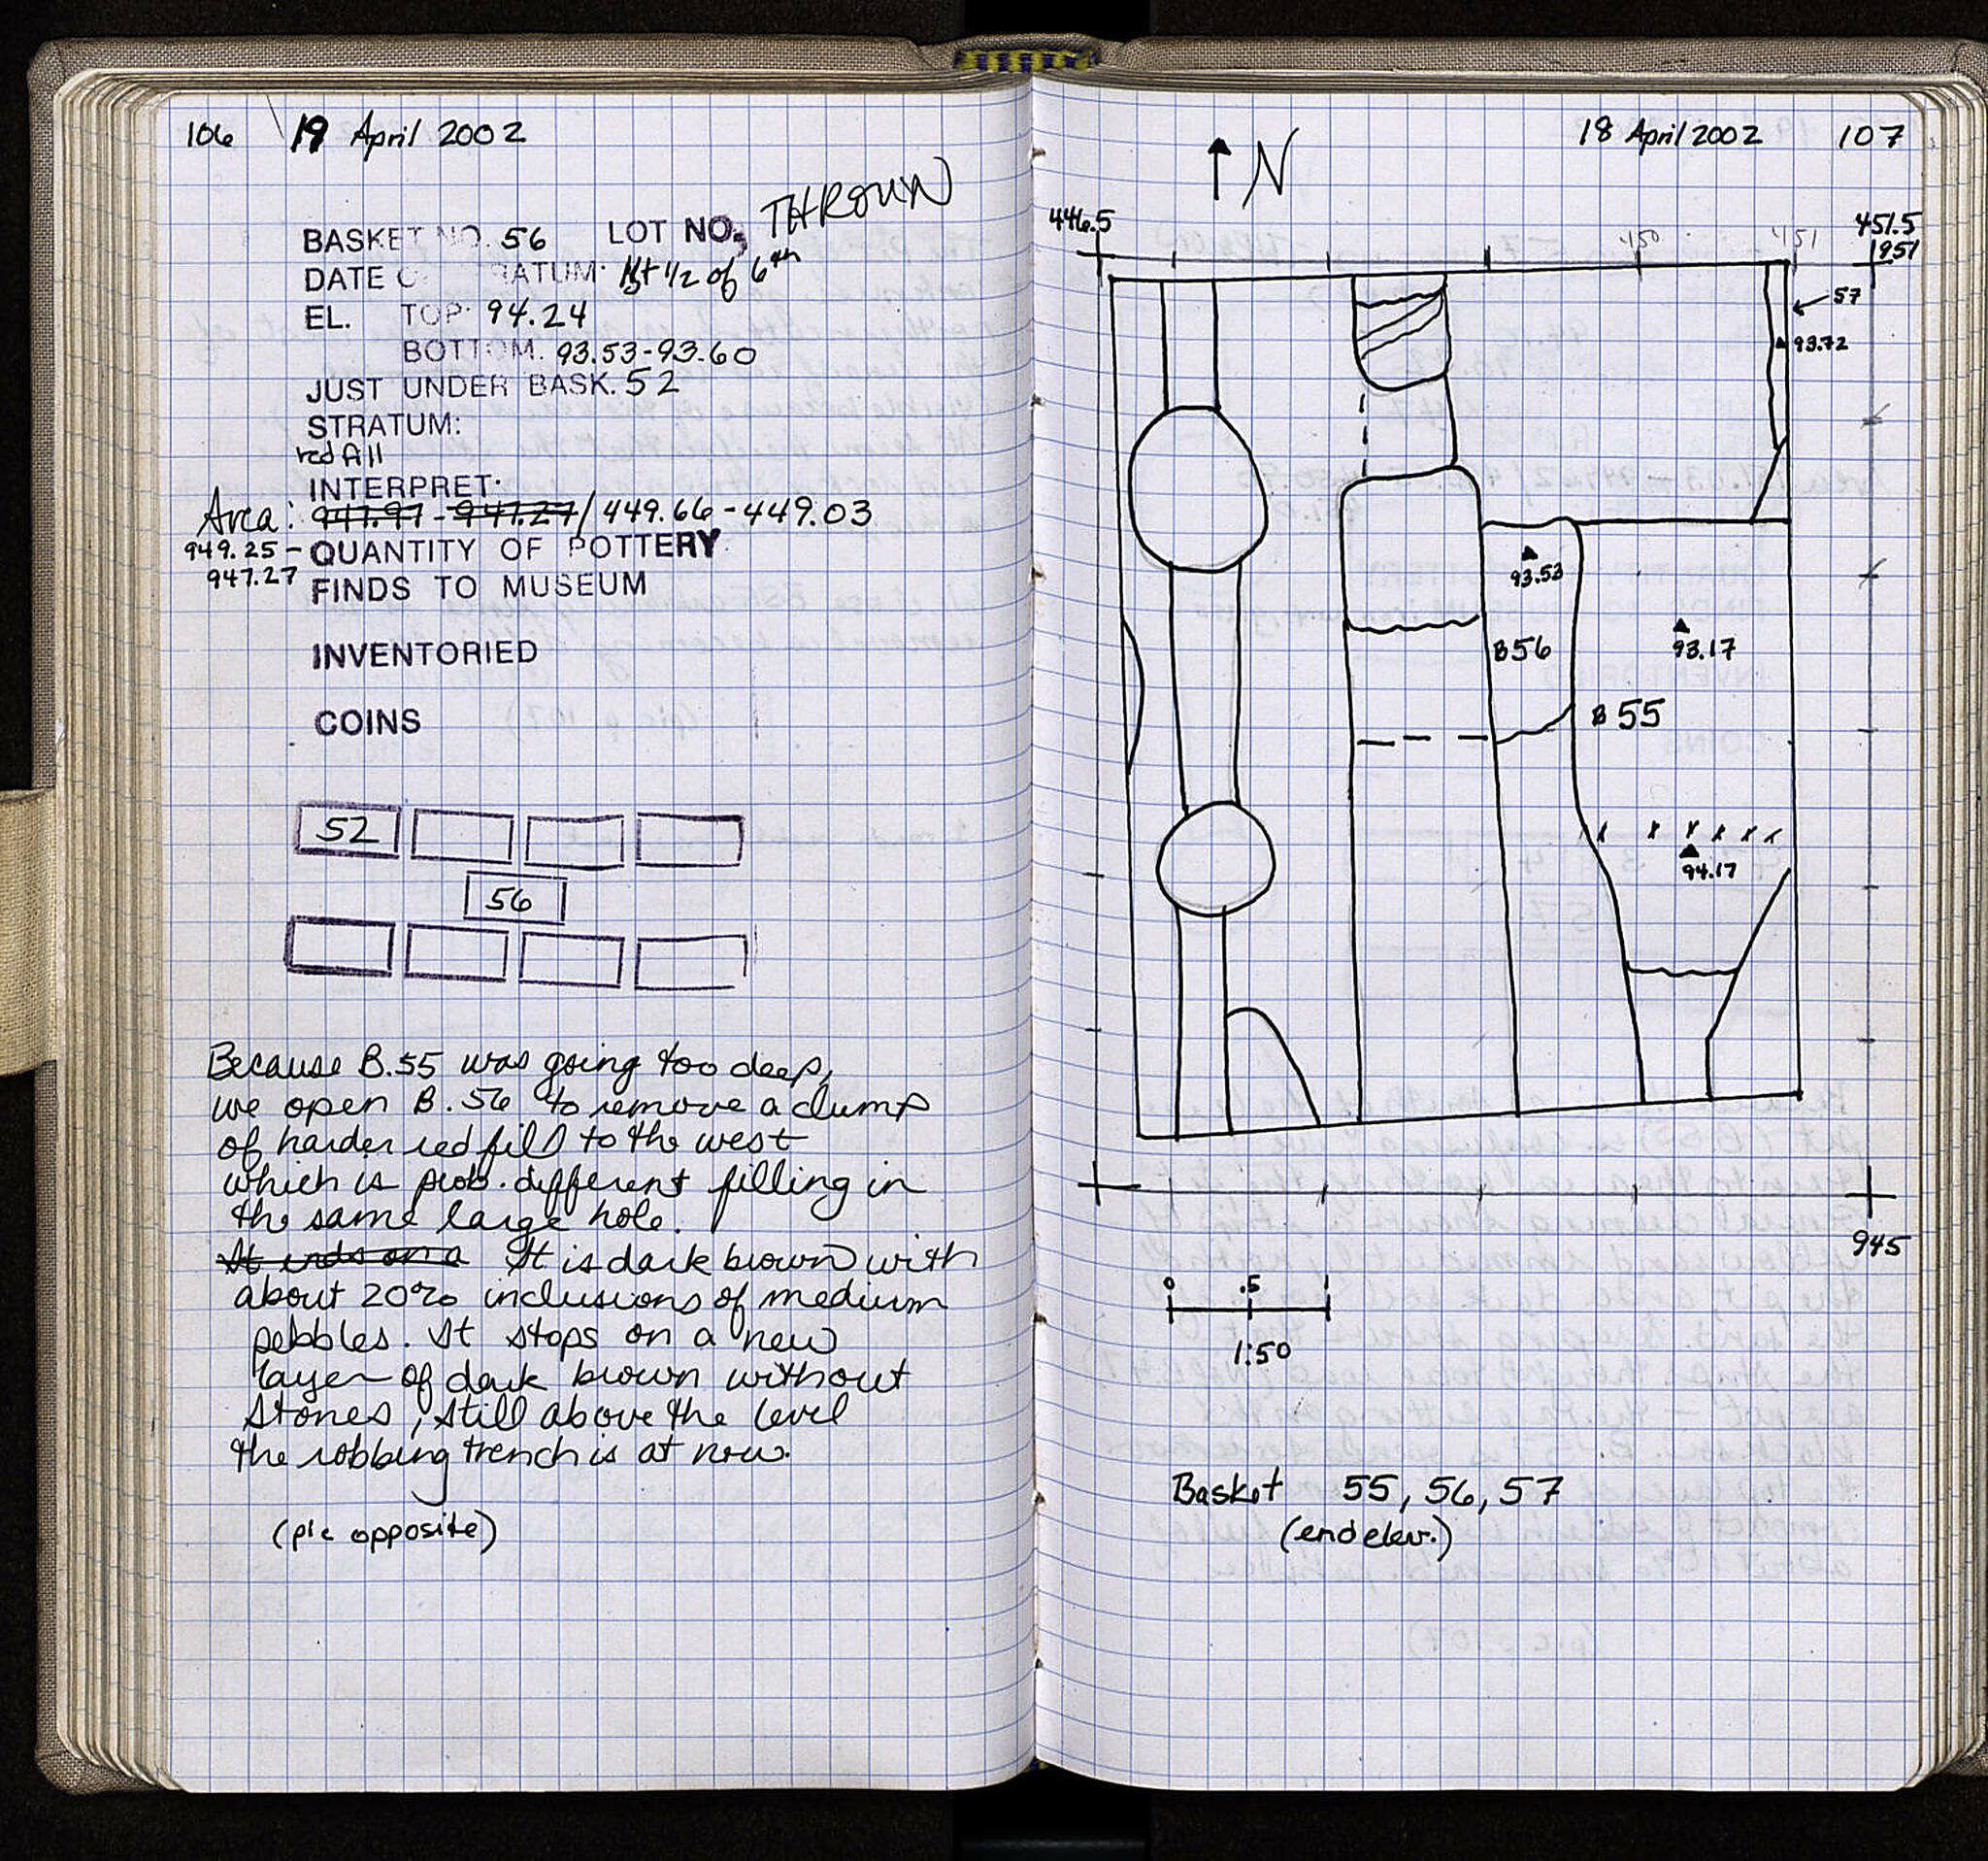 106 19 April 2002
BASKET NO. 56 LOT NO. THROWN
DATE O. RATUM: 1st 1/2 of 6th
EL. TOP: 94.24
BOTTOM. 93.53-93.60
JUST UNDER BASK. 52
STRATUM:
red fill
INTERPRET.
Area: 947.97 - 947.27/449.66-449.03
949.25-
947.27
QUANTITY OF POTTERY
FINDS TO MUSEUM
INVENTORIED
COINS
52
56
Because B.55 was going too deep,
we open B.56 to remove a clump
of harder red fill to the west
which is prob. different filling in
the same large hole.
It ends on a It is dark brown with
about 20% inclusions of medium
pebbles. It stops on a new
layer of dark brown without
stones, still above the level
the robbing trench is at now.
(pic opposite)
18 April 2002 107
N
446.5
450
451
451.5
951
57
93.72
93.53
93.17
B56
B 55
94.17
945
0 .5 1
1:50
Basket 55, 56, 57
(end elev.)